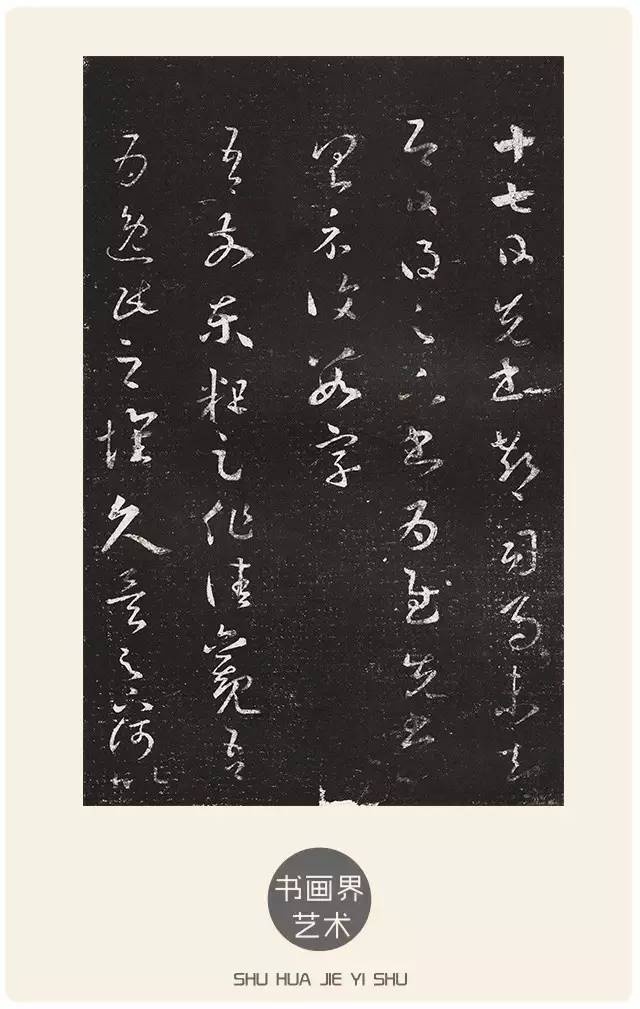 十七日先書郗司馬未去
即日得足下書為慰先書
具示復數字
吾前東粗足作佳觀吾
為逸民之懷久矣足下何
书画界
艺术
SHU HUA JIE YI SHU